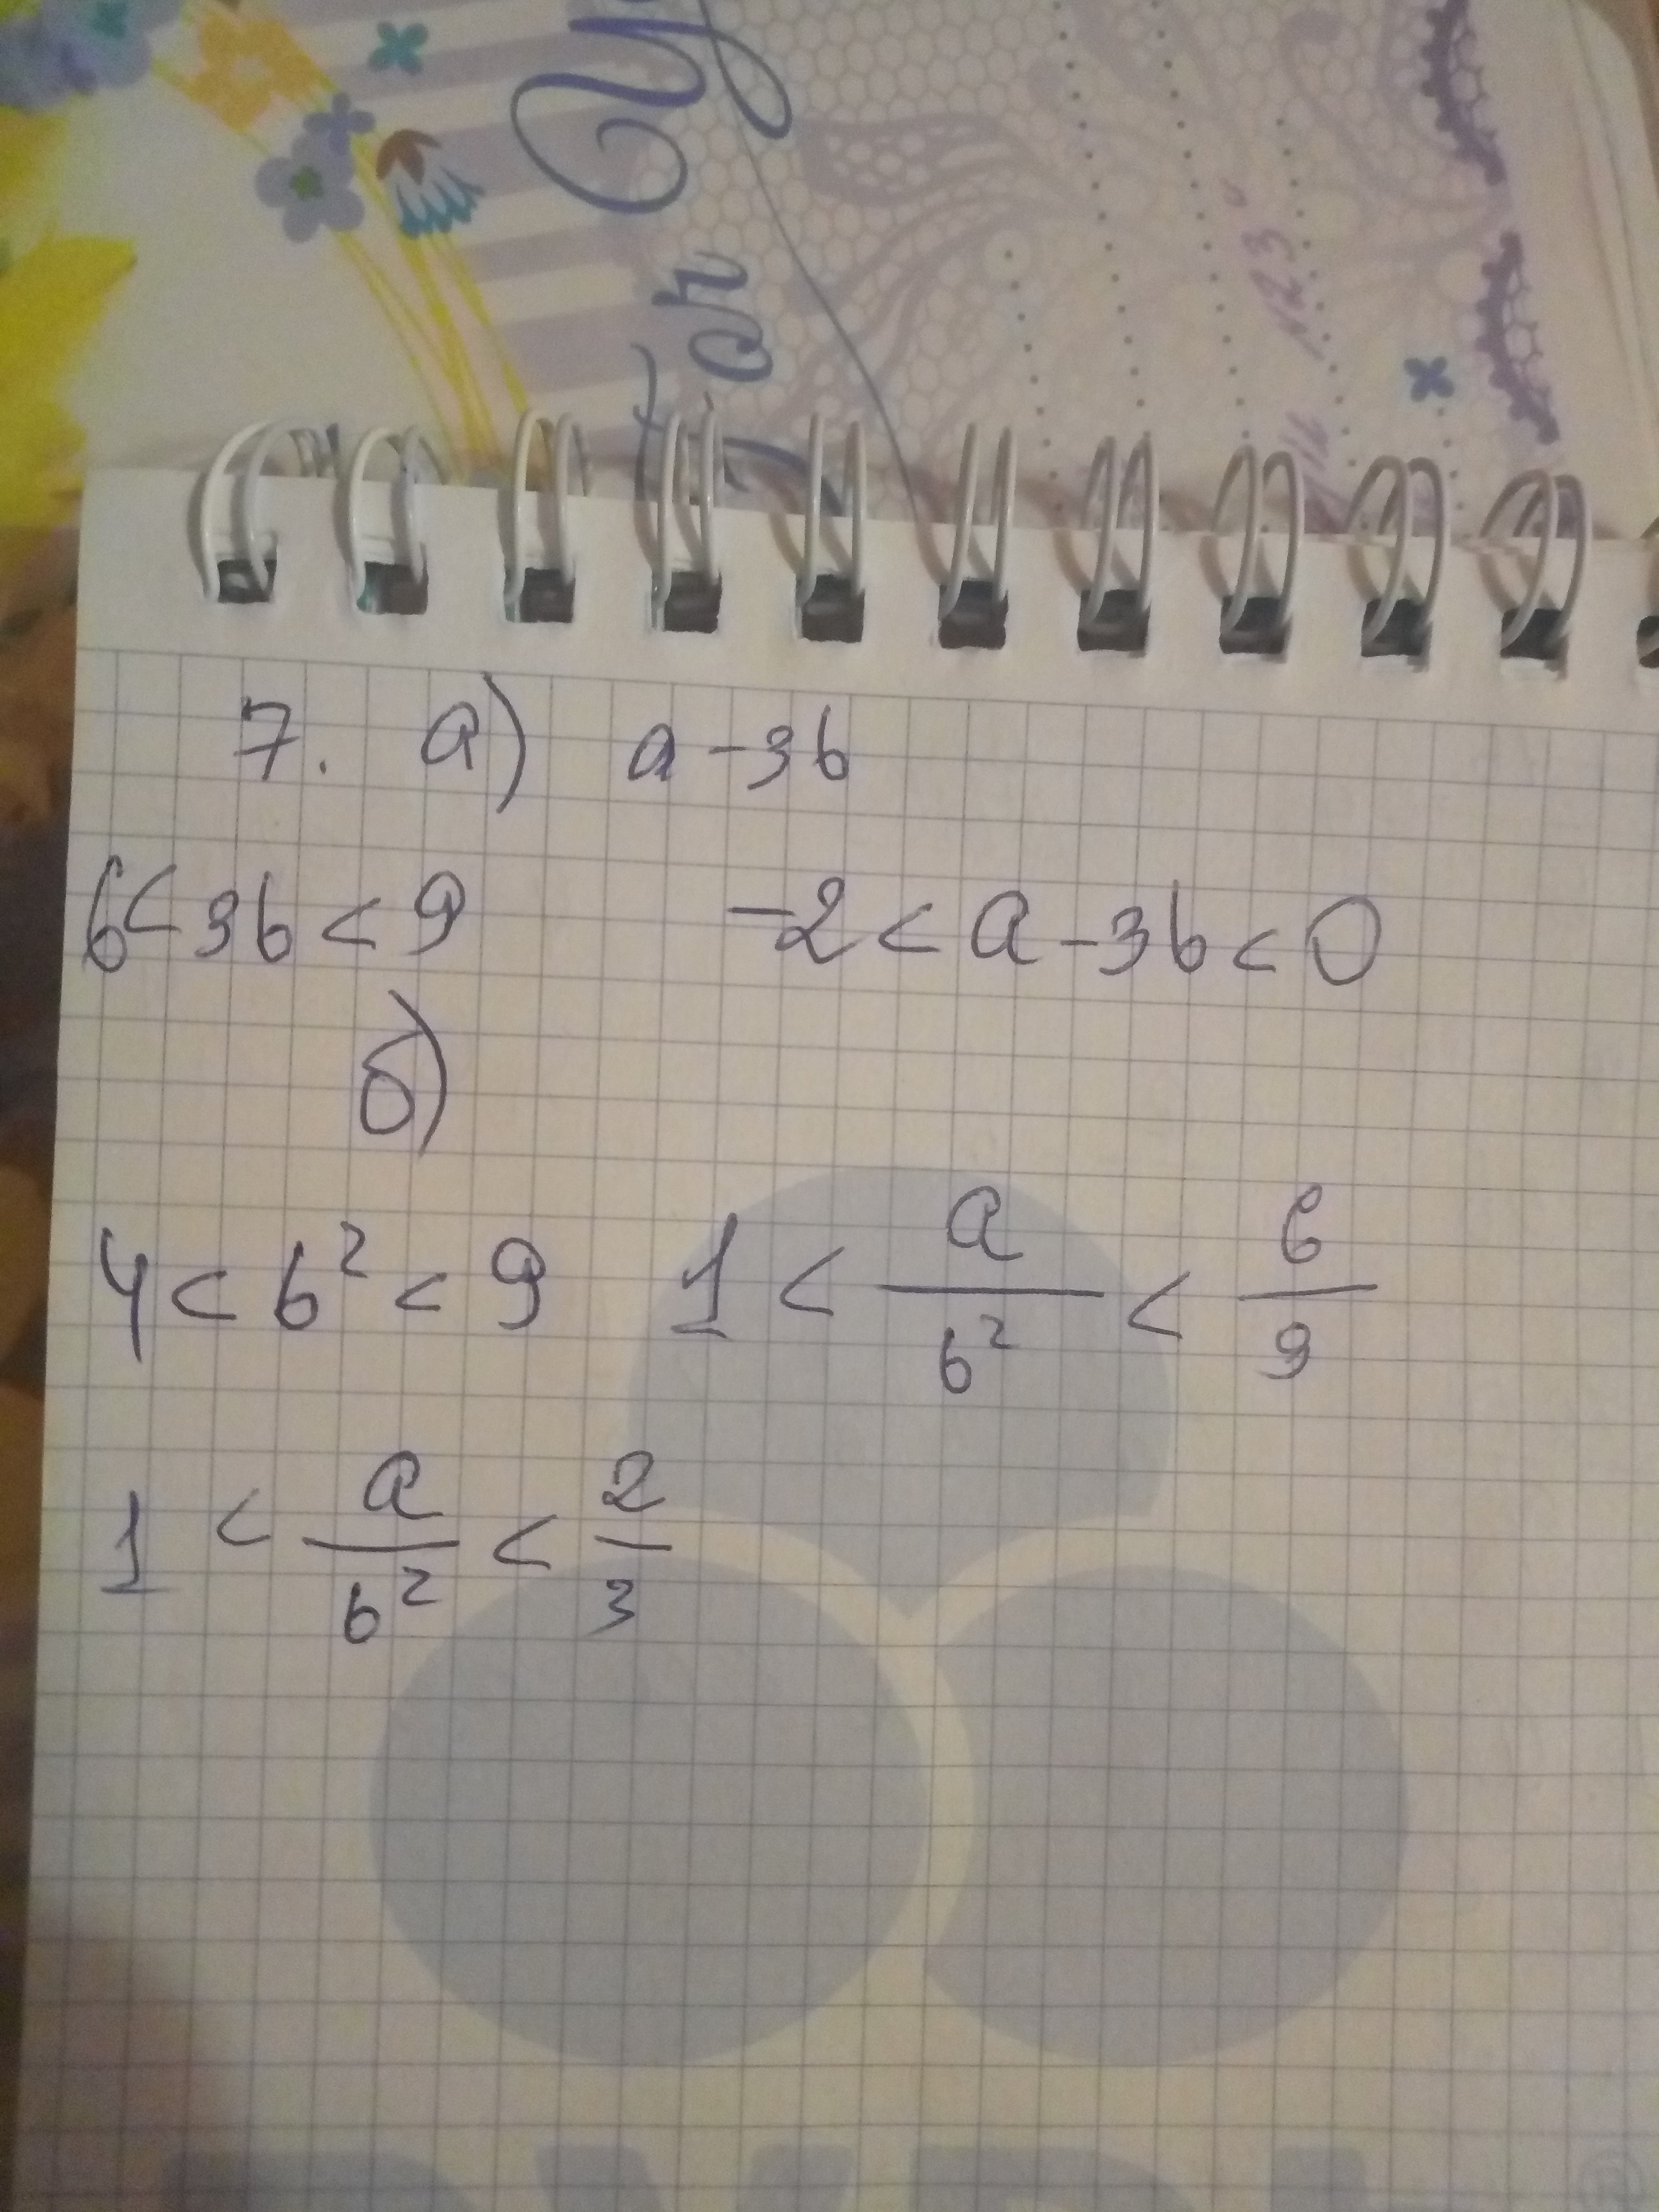 for
7. a) a - 3b
6 < 3b < 9 -2 < a - 3b < 0
б)
4 < b² < 9 1 < a/b² < 6/9
1 < a/b² < 2/3